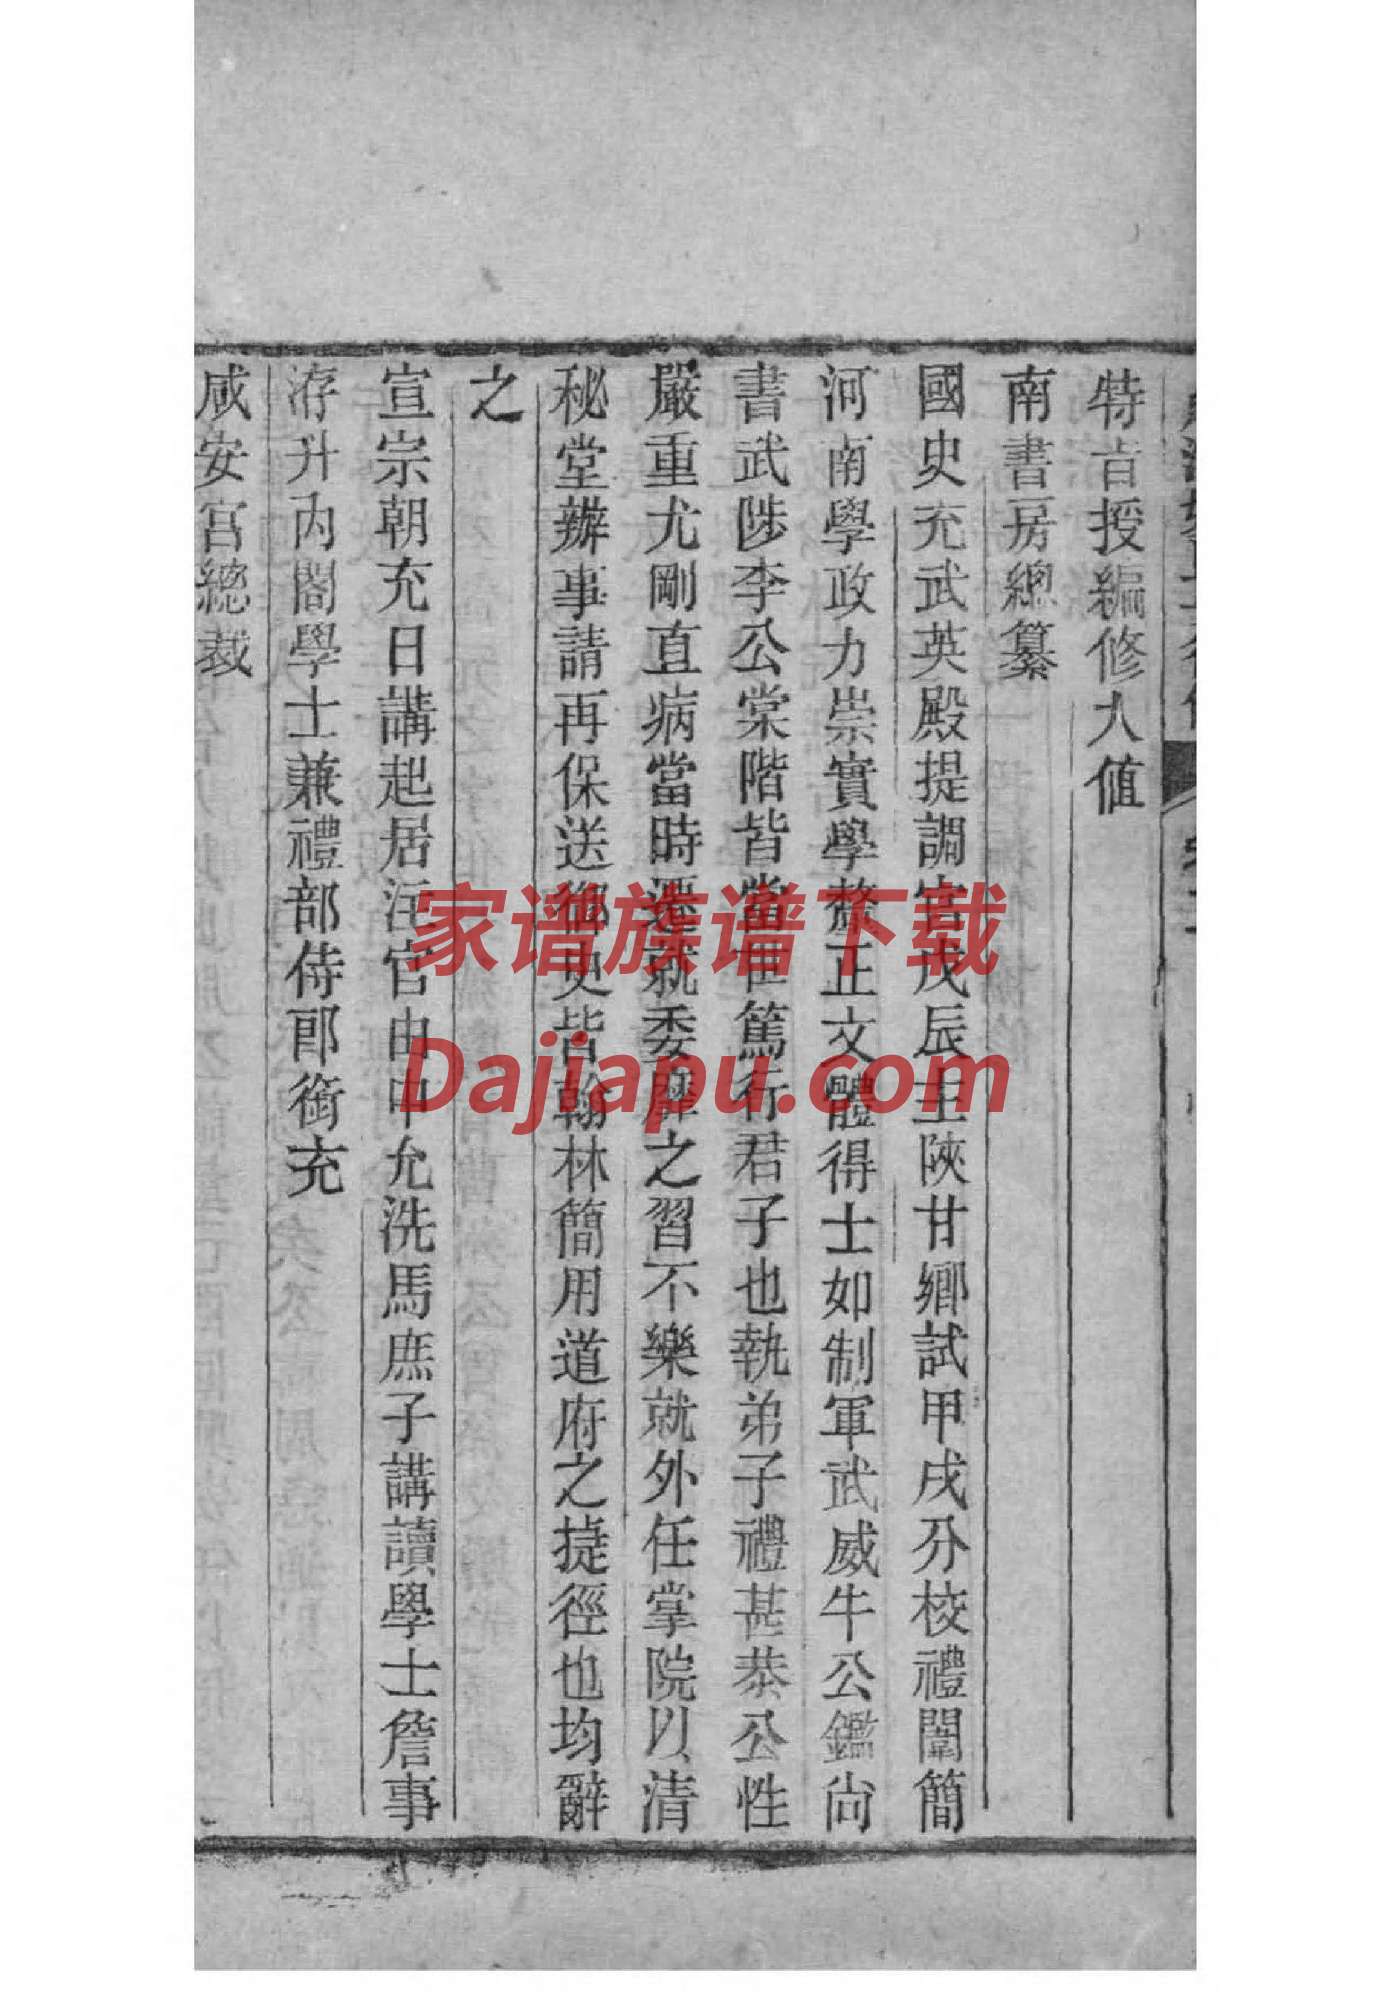 特旨授編修入值
南書房總纂
國史充武英殿提調官戊辰主陝甘鄉試甲戌分校禮闈簡
河南學政力崇實學釐正文體得士如制軍武威牛公鑑尚
書武陟李公棠階皆當世篤行君子也執弟子禮甚恭公性
嚴重尤剛直病當時遷就委靡之習不樂就外任掌院以清
秘堂辦事請再保送御史皆翰林簡用道府之捷徑也均辭
之
宣宗朝充日講起居注官由中允洗馬庶子講讀學士詹事
洊升內閣學士兼禮部侍郎銜充
咸安宮總裁
家谱族谱下载
Dajiapu.com